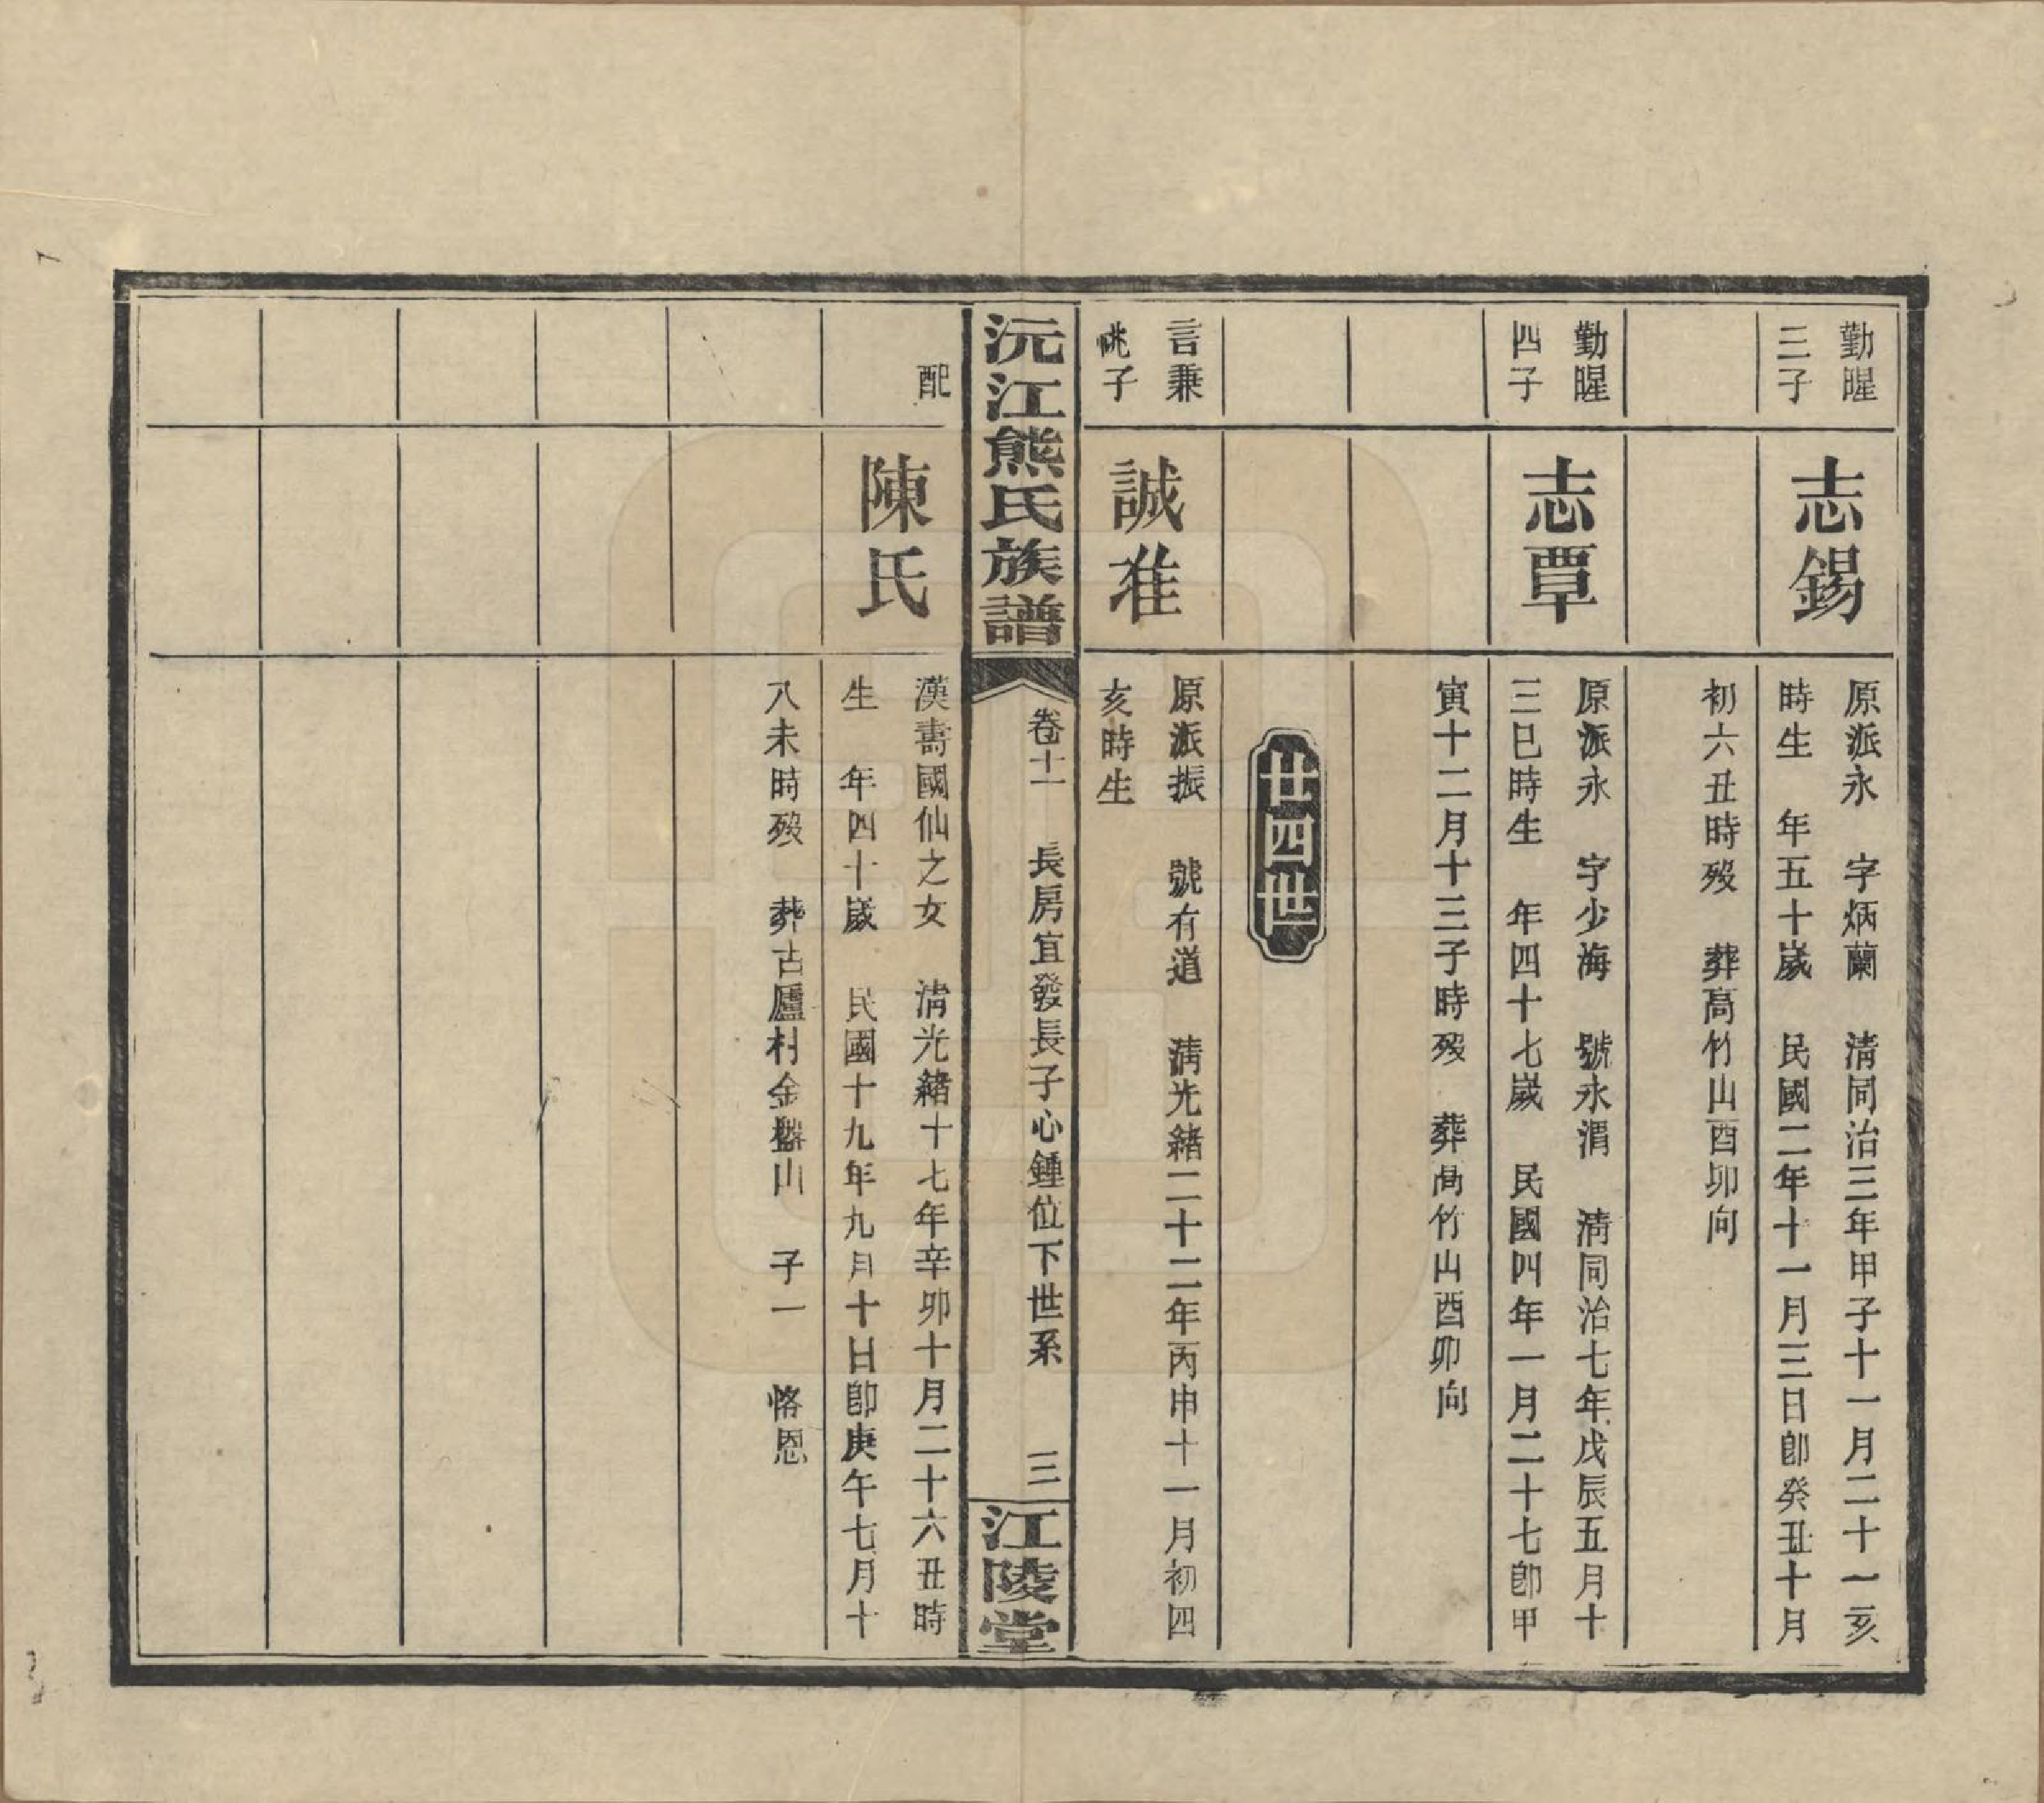 勤暒
三子
志錫
原派永　字炳蘭　清同治三年甲子十一月二十一亥
時生　年五十嵗　民國二年十一月三日卽癸丑十月
初六丑時歿　葬高竹山酉卯向
勤暒
四子
志覃
原派永　字少海　號永渭　清同治七年戊辰五月十
三巳時生　年四十七嵗　民國四年一月二十七卽甲
寅十二月十三子時歿　葬高竹山酉卯向
廿四世
言兼
祧子
誠准
原派振　號有道　清光緒二十二年丙申十一月初四
亥時生
沅江熊氏族譜
卷十一　長房宜發長子心鍾位下世系　三
江陵堂
配
陳氏
漢壽國仙之女　清光緒十七年辛卯十月二十六丑時
生　年四十嵗　民國十九年九月十日卽庚午七月十
八未時歿　葬古廬村金盤山　子一　恪恩